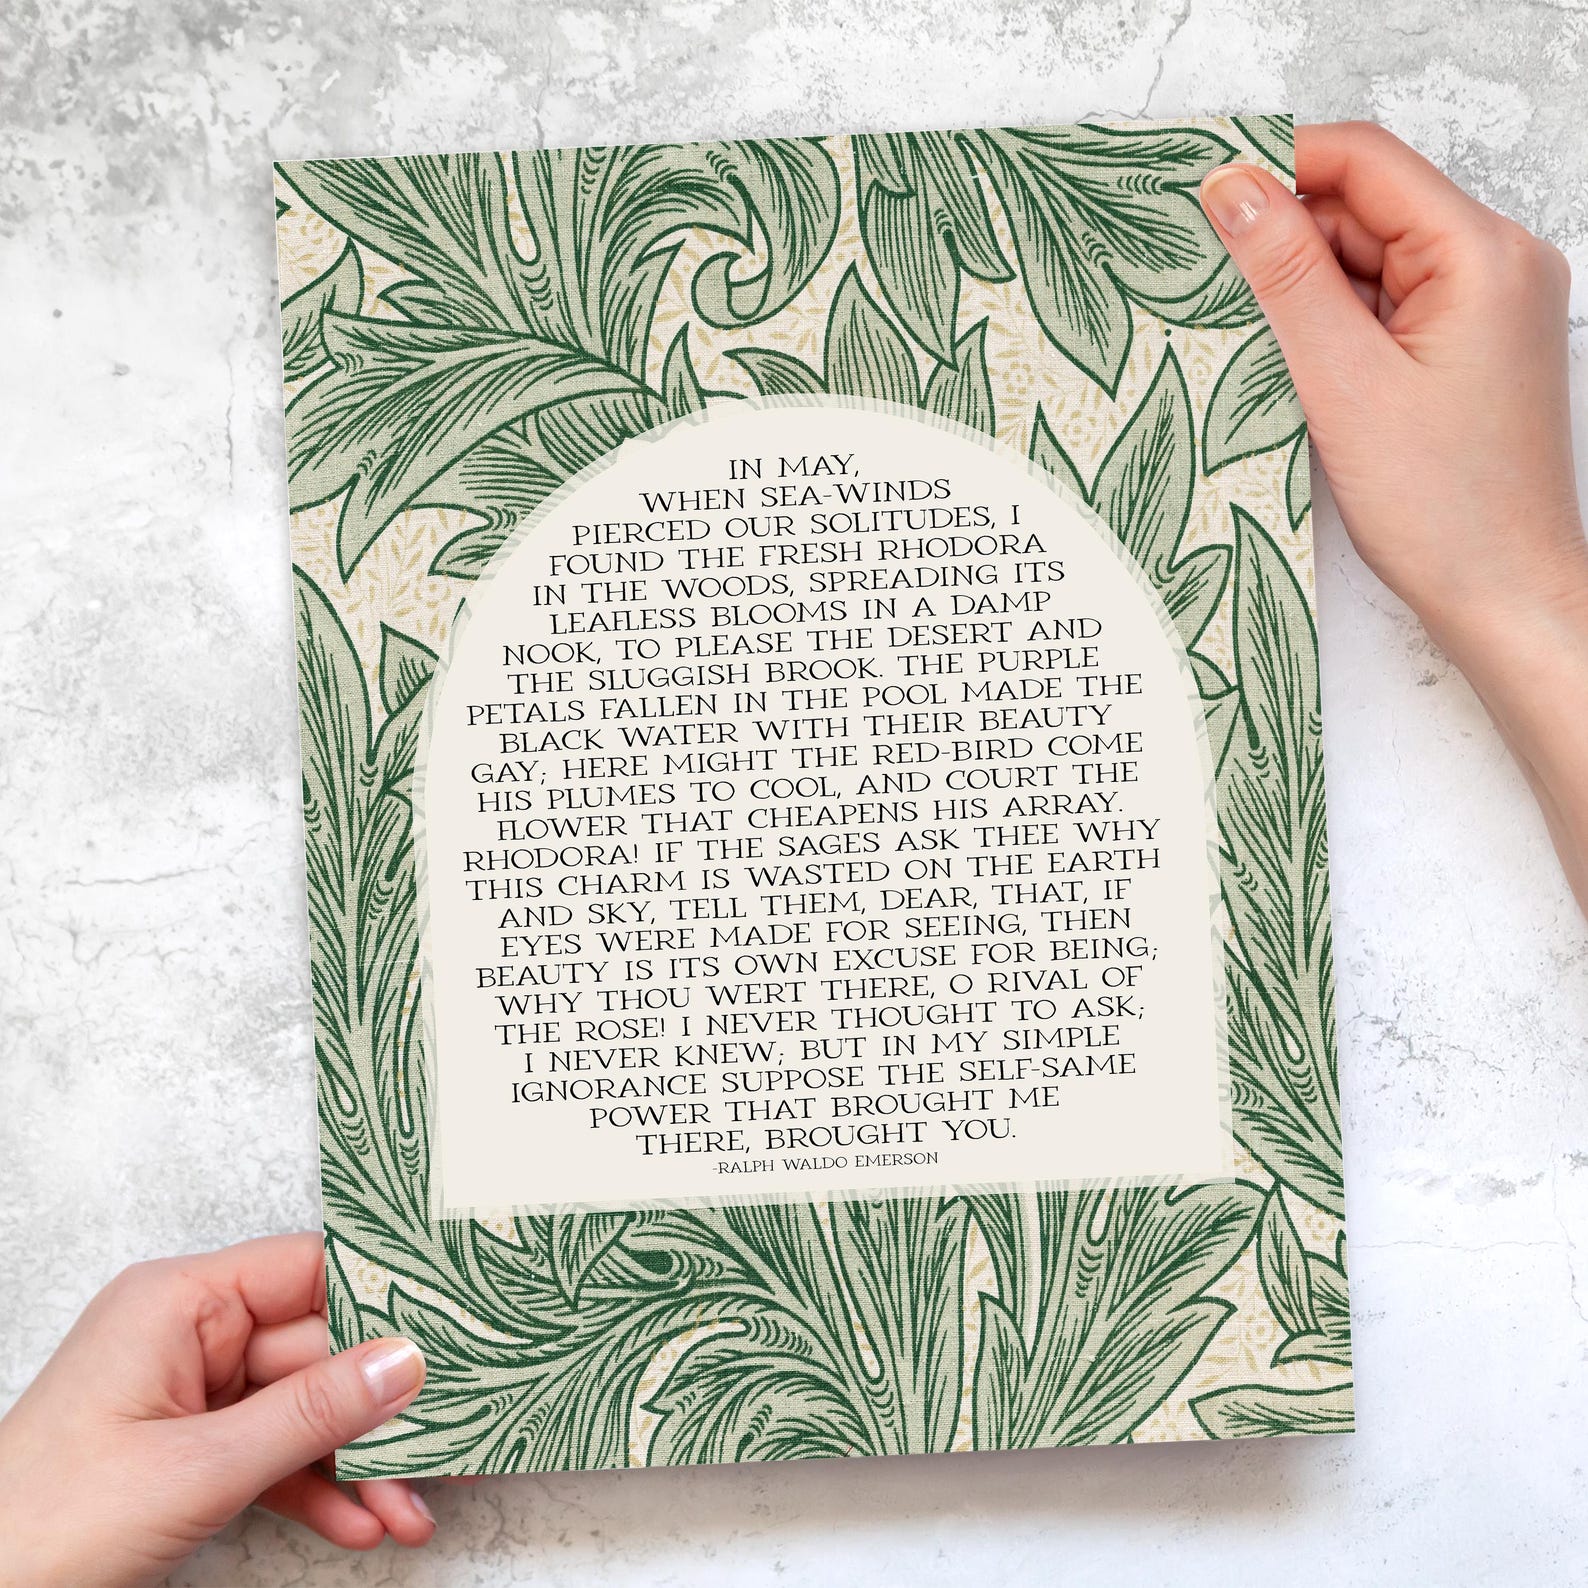 IN MAY,
WHEN SEA-WINDS
PIERCED OUR SOLITUDES, I
FOUND THE FRESH RHODORA
IN THE WOODS, SPREADING ITS
LEAFLESS BLOOMS IN A DAMP
NOOK, TO PLEASE THE DESERT AND
THE SLUGGISH BROOK. THE PURPLE
PETALS FALLEN IN THE POOL MADE THE
BLACK WATER WITH THEIR BEAUTY
GAY; HERE MIGHT THE RED-BIRD COME
HIS PLUMES TO COOL, AND COURT THE
FLOWER THAT CHEAPENS HIS ARRAY.
RHODORA! IF THE SAGES ASK THEE WHY
THIS CHARM IS WASTED ON THE EARTH
AND SKY, TELL THEM, DEAR, THAT, IF
EYES WERE MADE FOR SEEING, THEN
BEAUTY IS ITS OWN EXCUSE FOR BEING;
WHY THOU WERT THERE, O RIVAL OF
THE ROSE! I NEVER THOUGHT TO ASK;
I NEVER KNEW; BUT IN MY SIMPLE
IGNORANCE SUPPOSE THE SELF-SAME
POWER THAT BROUGHT ME
THERE, BROUGHT YOU.
-RALPH WALDO EMERSON